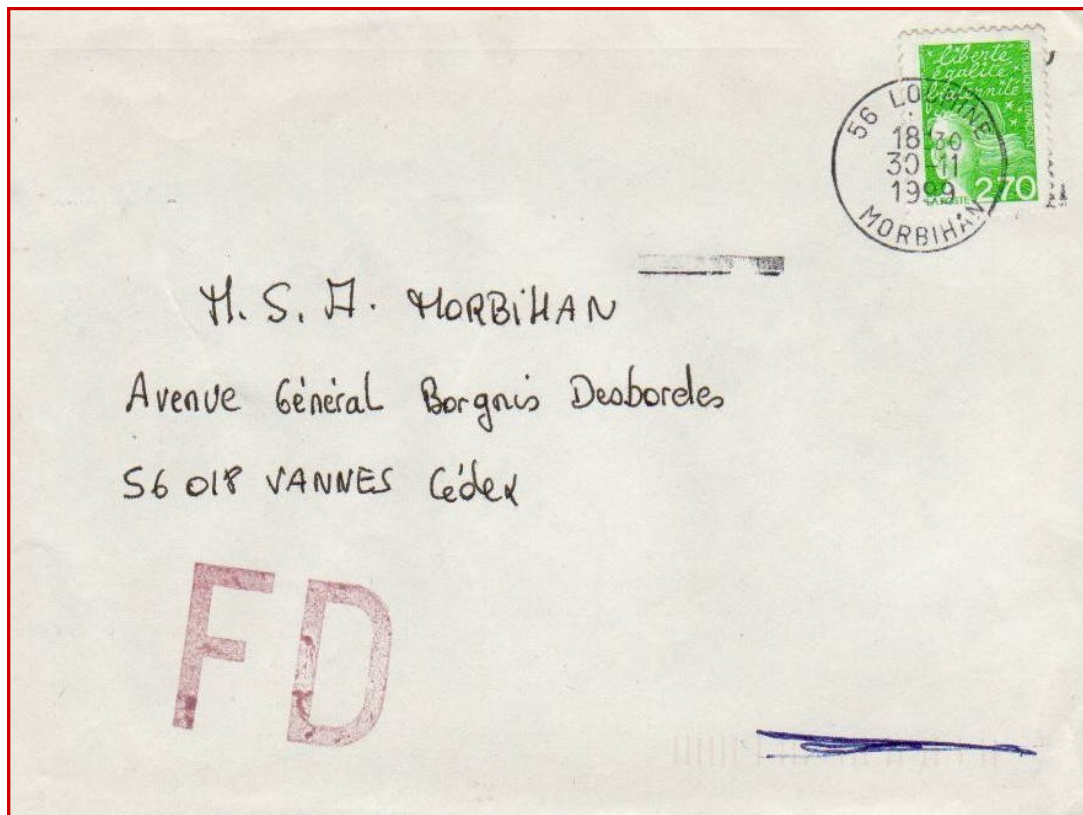 liberté
égalité
fraternité
RÉPUBLIQUE FRANÇAISE
2,70
LA POSTE
56
18-30
30-11
1999
MORBIHAN
M. S. A. MORBiHAN
Avenue Général Borgnis Desbordes
56 018 VANNES Cédex
FD